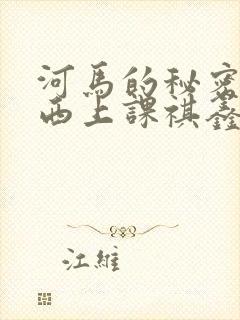 河馬的秘密
西上課祺鑫
江維